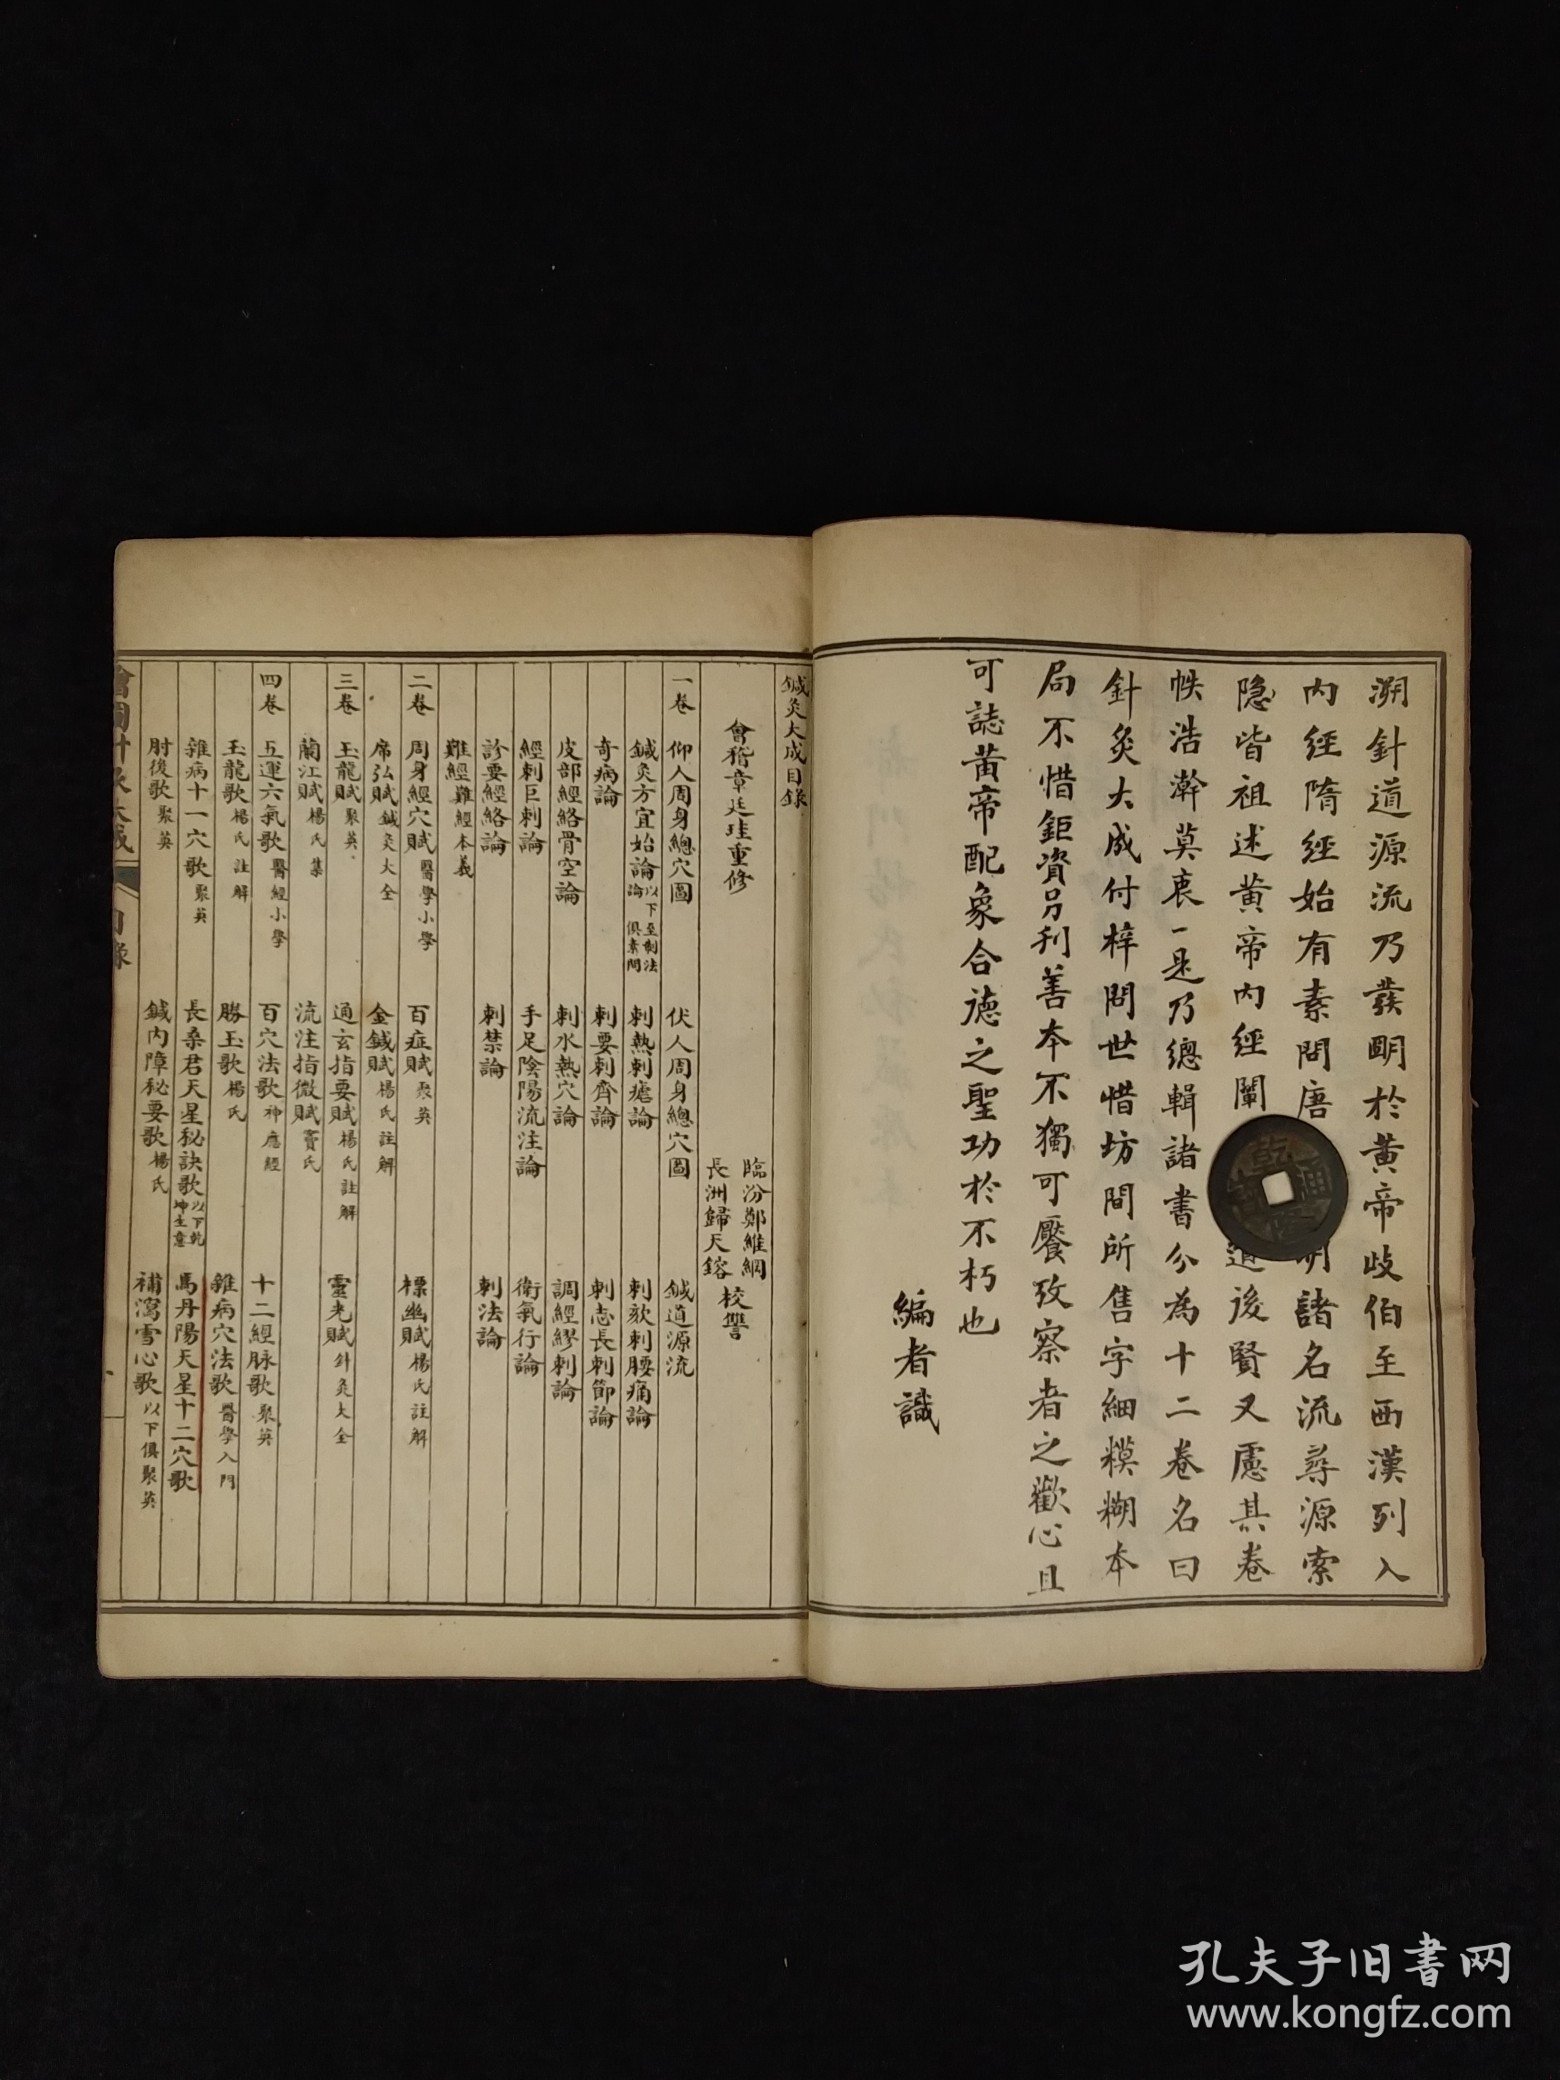 溯針道源流乃發明於黄帝歧伯至西漢列入
内經隋經始有素問唐 明諸名流尋源索
隐皆祖述黄帝内經闡 道後賢又慮其卷
帙浩瀚莫衷一是乃總輯諸書分為十二卷名曰
針灸大成付梓問世惜坊間所售字細糢糊本
局不惜鉅資另刊善本不獨可饜攷察者之歡心且
可誌黄帝配象合德之聖功於不朽也
編者識
乾隆通寶
鍼灸大成目錄
會稽章廷珪重修
臨汾鄭維綱
長洲歸天鎔
校讐
一卷 仰人周身總穴圖 伏人周身總穴圖 鍼道源流
鍼灸方宜始論以下至刺法論俱素問 刺熱刺瘧論 刺欬刺腰痛論
奇病論 刺要刺齊論 刺志長刺節論
皮部經絡骨空論 刺水熱穴論 調經繆刺論
經刺巨刺論 手足陰陽流注論 衛氣行論
診要經絡論 刺禁論 刺法論
難經難經本義
二卷 周身經穴賦醫學小學 百症賦聚英 標幽賦楊氏註解
席弘賦鍼灸大全 金鍼賦楊氏註解
三卷 玉龍賦聚英 通玄指要賦楊氏註解 靈光賦針灸大全
蘭江賦楊氏集 流注指微賦竇氏
四卷 五運六氣歌醫經小學 百穴法歌神應經 十二經脉歌聚英
玉龍歌楊氏註解 勝玉歌楊氏 雜病穴法歌醫學入門
雜病十一穴歌聚英 長桑君天星秘訣歌以下乾坤生意 馬丹陽天星十二穴歌
肘後歌聚英 鍼内障秘要歌楊氏 補瀉雪心歌以下俱聚英
會圖針灸大成
目錄
一
孔夫子旧書网
www.kongfz.com